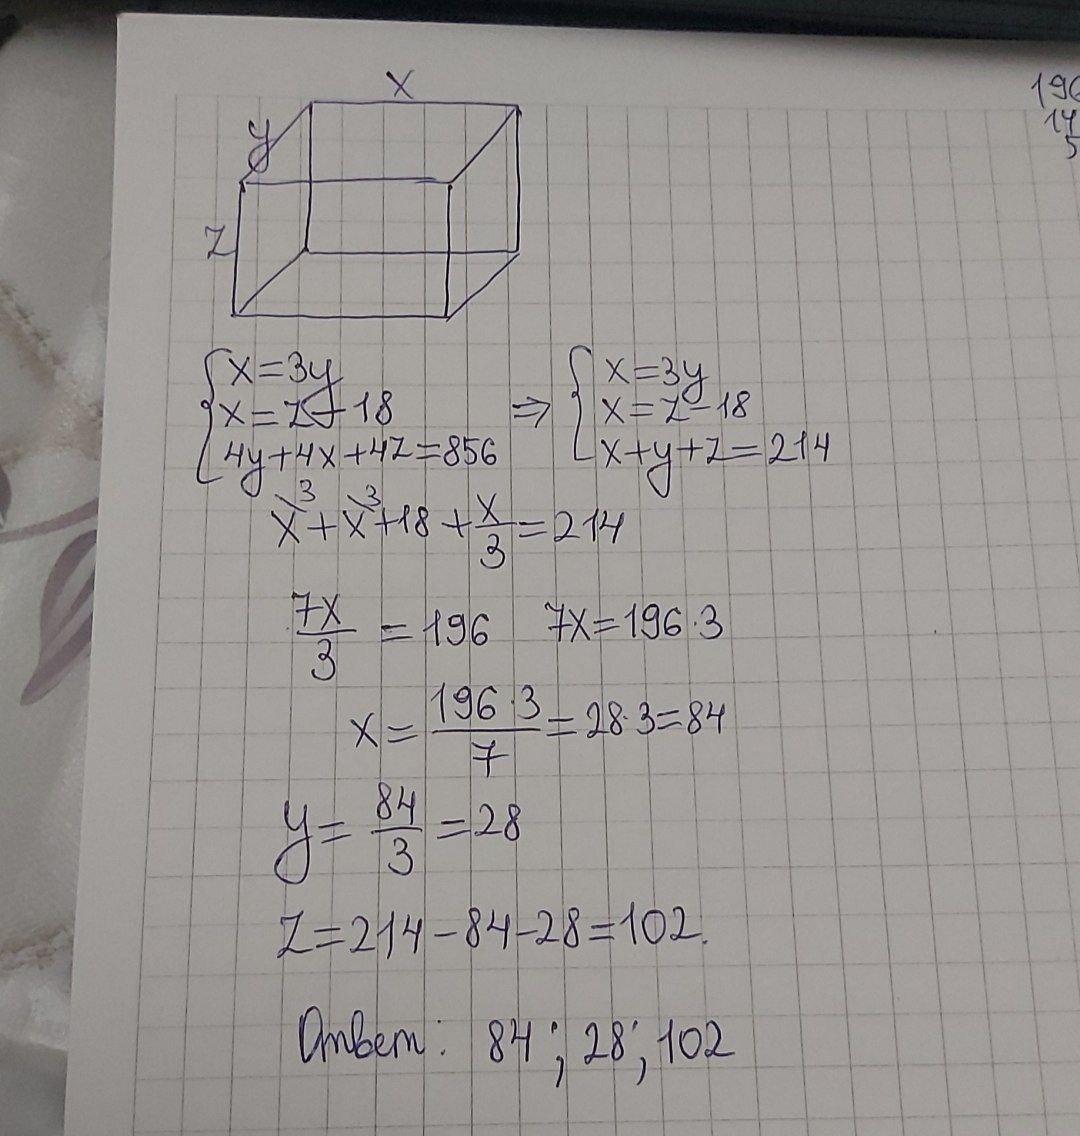 x
y
z
196
14
5
{x=3y
x=z-18
4y+4x+4z=856
⇒ {x=3y
x=z-18
x+y+z=214
x\3 + x\3 +18 + x/3 = 214
7x/3 = 196 7x=196·3
x = 196·3/7 = 28·3=84
y = 84/3 = 28
z=214-84-28=102.
Ответ: 84; 28; 102